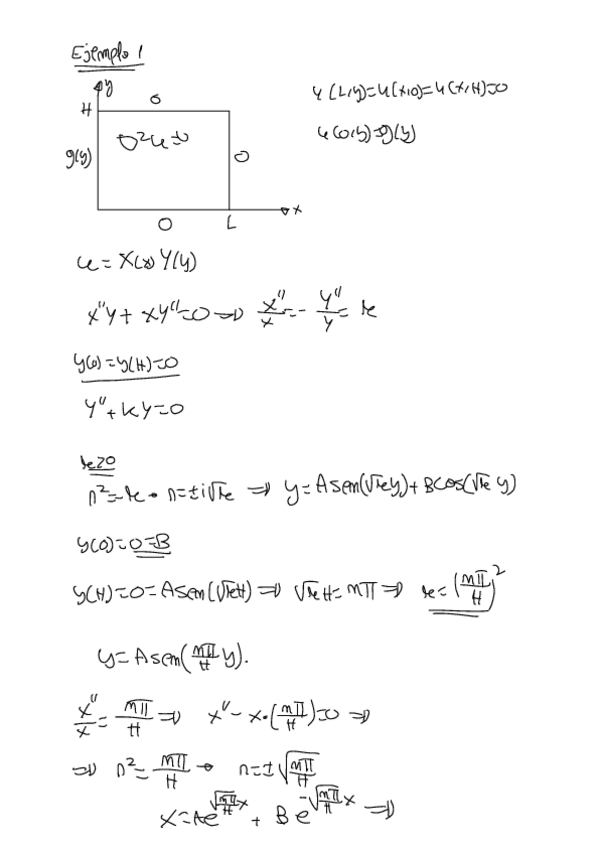 Ejemplo 1
y
H
0
u(L,y)=u(x,0)=u(x,H)=0
g(y)
∇²u=0
0
u(0,y)=g(y)
0
L
x
u = X(x) Y(y)
x''y + xy''=0 ⇒ x''/x = - y''/y = k
y(0)=y(H)=0
y''+ky=0
k≥0
n²=-k → n=±i√k ⇒ y=A sen(√k y)+ B cos(√k y)
y(0)=0=B
y(H)=0=A sen(√k H) ⇒ √k H = mπ ⇒ k = (mπ/H)²
y = A sen(mπ/H y).
x''/x = mπ/H ⇒ x'' - x·(mπ/H)=0 ⇒
⇒ n² = mπ/H → n=±√(mπ/H)
x = Ae^(√(mπ/H) x) + Be^(-√(mπ/H) x) ⇒